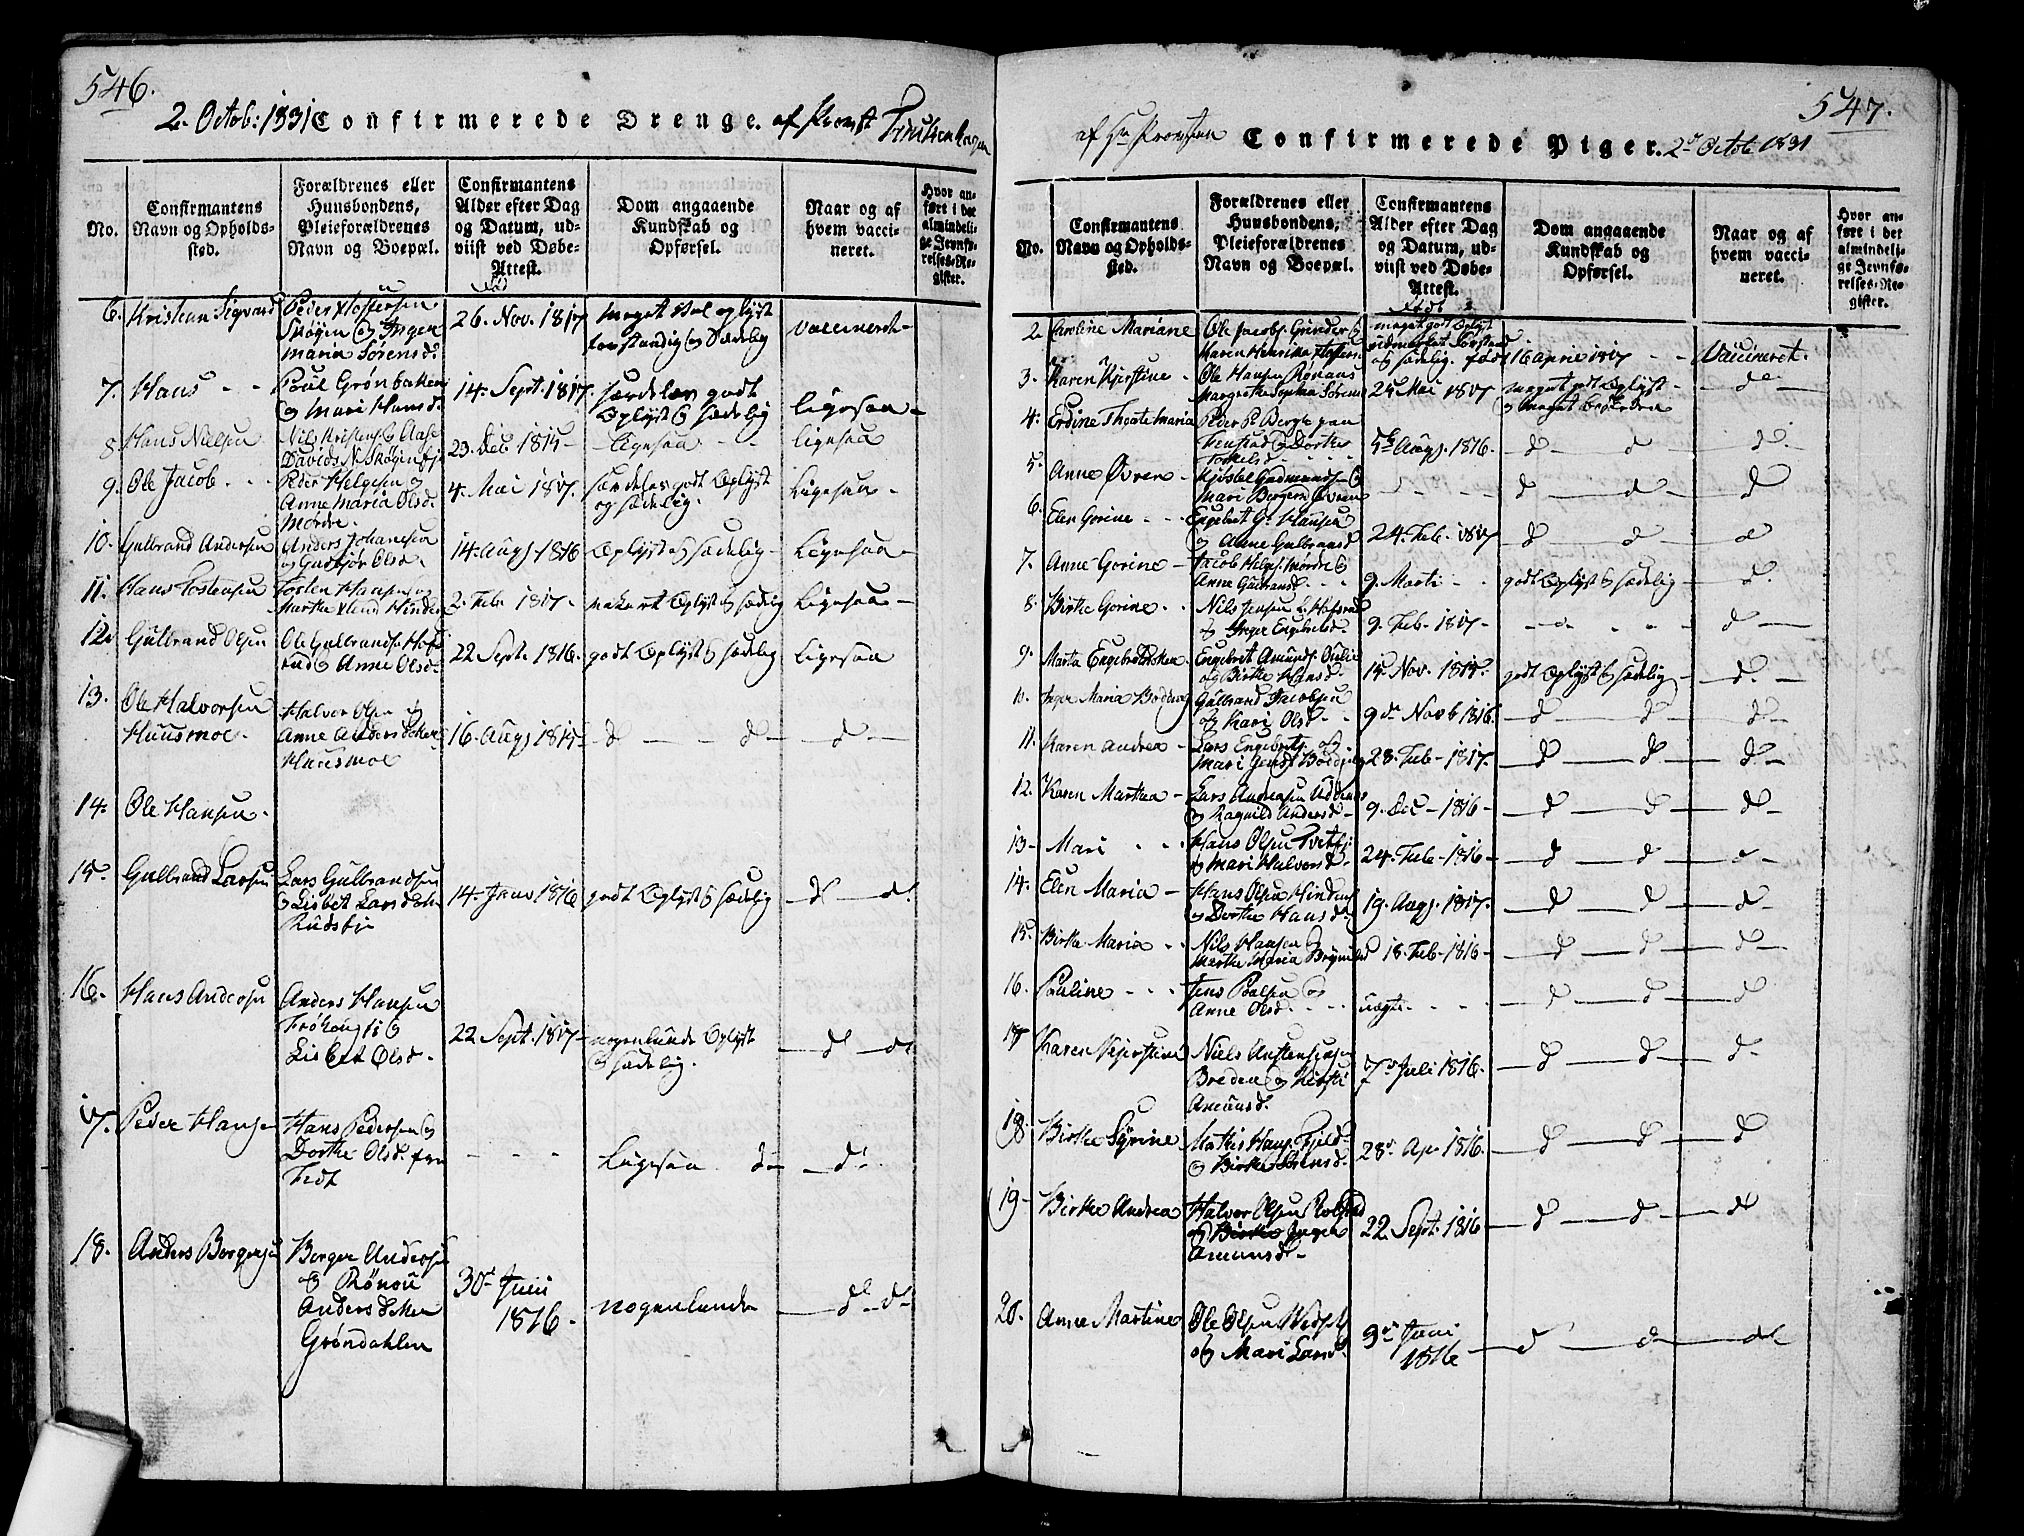 546.
2. Octob: 1831 Confirmerede Drenge. af Provst
No.
Confirmantens Navn og Opholdssted.
Forældrenes eller Huusbondens, Pleieforældrenes Navn og Boepæl.
Confirmantens Alder efter Dag og Datum, udviist ved Døbe-Attest.
Dom angaaende Kundskab og Opførsel.
Naar og af hvem vaccineret.
Hvor anført i det almindelige Jevnførelses-Register.
6. Kristian Sigvard
Peder
Skøgin og Inger
Maria Sørensd.
26. Nov. 1817
Meget vel oplyst
forstandig og Sædelig
vaccinerede
7. Hans
Poul Grønbakken
og Mari Hansd.
14. Sept. 1817
særdeles godt
Oplyst og sædelig
ligesaa
8 Hans Nielsen
Nils Kristens. og Aase
Davids
23. Dec. 1815
Ligesaa
ligesaa
9. Ole Jacob
Peder Helgesen og
Anne Maria Olsd.
Mørdre.
4. Mai 1817.
særdeles godt Oplyst
og sædelig.
Ligesaa
10. Gulbrand Andersen
Anders Johannesen
og Gudbjør Olsd.
14 Augs. 1816
Oplyst og sædelig
Ligesaa
11. Hans Tostensen
Tosten Hansen og
Marthe
2. Feb. 1817.
Oplyst og sædelig
Ligesaa
12. Gulbrand Olsen
Ole Gulbrands. Hofs
rud og Anne Olsd.
22 Sept. 1816.
godt Oplyst og sædelig
Ligesaa
13. Ole Halvorsen
Huusmoe
Halvor Olsen og
Anne Andersdatter
Huusmoe
16. Augs 1815
d d d
14. Ole Hansen
15. Gulbrand Larsen
Lars Gulbrandsen
og Lisbet Larsdatter
Rudsbye
14. Janv 1816
godt Oplyst og sædelig
d d.
16. Hans Andersen
Anders Hansen
Frøhaug og
Lisbet Olsd.
22 Sept. 1817
nogenlunde Oplyst
og sædelig.
d d.
17. Peder Hansen
Hans Pedersen og
Dorthe Olsd. fra
Tedt
Ligesaa d d.
18. Anders Bergersen
Berger Andersen
og Rønou
Andersdatter
Grøndahlen
30te Juni
1816.
nogenlunde
d d
547.
Confirmerede Piger. 2d Octob 1831
No.
Confirmantens Navn og Opholdssted.
Forældrenes eller Huusbondens, Pleieforældrenes Navn og Boepæl.
Confirmantens Alder efter Dag og Datum, udviist ved Døbe-Attest.
Dom angaaende Kundskab og Opførsel.
Naar og af hvem vaccineret.
Hvor anført i det almindelige Jevnførelses-Register.
2. Caroline Mariane
Ole Jacobs. Grinder og
Karen Henrikka
meget godt Oplyst
og sædelig. født 16 April 1817
Vaccineret.
3. Karen Kjerstine
Ole Hansen Rønaas
Margrethe Sophia Sørens
25 Mai 1817
meget godt Oplyst
do
4. Erdine Thorte Maria
Peder P Berg paa
Finstad og Dorthe
Torkelsd.
5te Augs. 1816
d d d
5. Anne Øvren
Gudmundsen og
Mari Bergers Øvren
d d d
6. Elen Gorine
Engebret G. Hansen
og Anne Gulbransd
24. Feb. 1817
d d d
7. Anne Gorine
Jacob Helges. Mørdre og
Anne Gulbransd.
9. Marti
godt Oplyst og sædelig
d.
8. Birthe Gorine
Nils Jensen L. Hofsrud
og Inger Engebretsd.
9. Feb 1817
d
9. Marta Engebretsdatter
Engebret Amunds.
og Birthe Hansd.
15 Nov. 1815.
godt Oplyst og sædelig
d.
10. Inger Maria Bødeng
Gulbrand Jacobsen
og Kari Olsd.
9de Novb 1816.
d d d
11. Karen Andrea
Lars Engebrets. og
Mari
28. Feb 1817.
d d d
12. Karen Marthea
Lars Andreasen
og Ragnild Andersd.
9. Dec 1816
d d d
13 Mari
Hans Olsen Tveter
og Mari Halvorsd.
24. Feb 1816
d d d
14. Elen Maria
Hans Olsen
og Dorthe Hansd.
19. Augs. 1817.
d d d
15. Birthe Maria
Nils Hansen og
Marthe Maria
18. Feb 1816
d d d
16. Pauline
Jens Poulsen og
Anne Olsd.
uægte
d d d
17 Karen Kjerstine
Niels Austensen
Breden og Kirsti
Amunsd.
7de Juli 1816.
d d d
18. Birthe Syrine
Mathis Hans. Fjeld
og Birthe Sørensd.
28de Ap. 1816.
d d d
19 Birthe Andrea
Halvor Olsen
og Inger
Amunsd
22 Sept. 1816
d d d
20. Anne Martine
Ole Olsen
og Mari Larsd.
9de Juni
1816
d d d